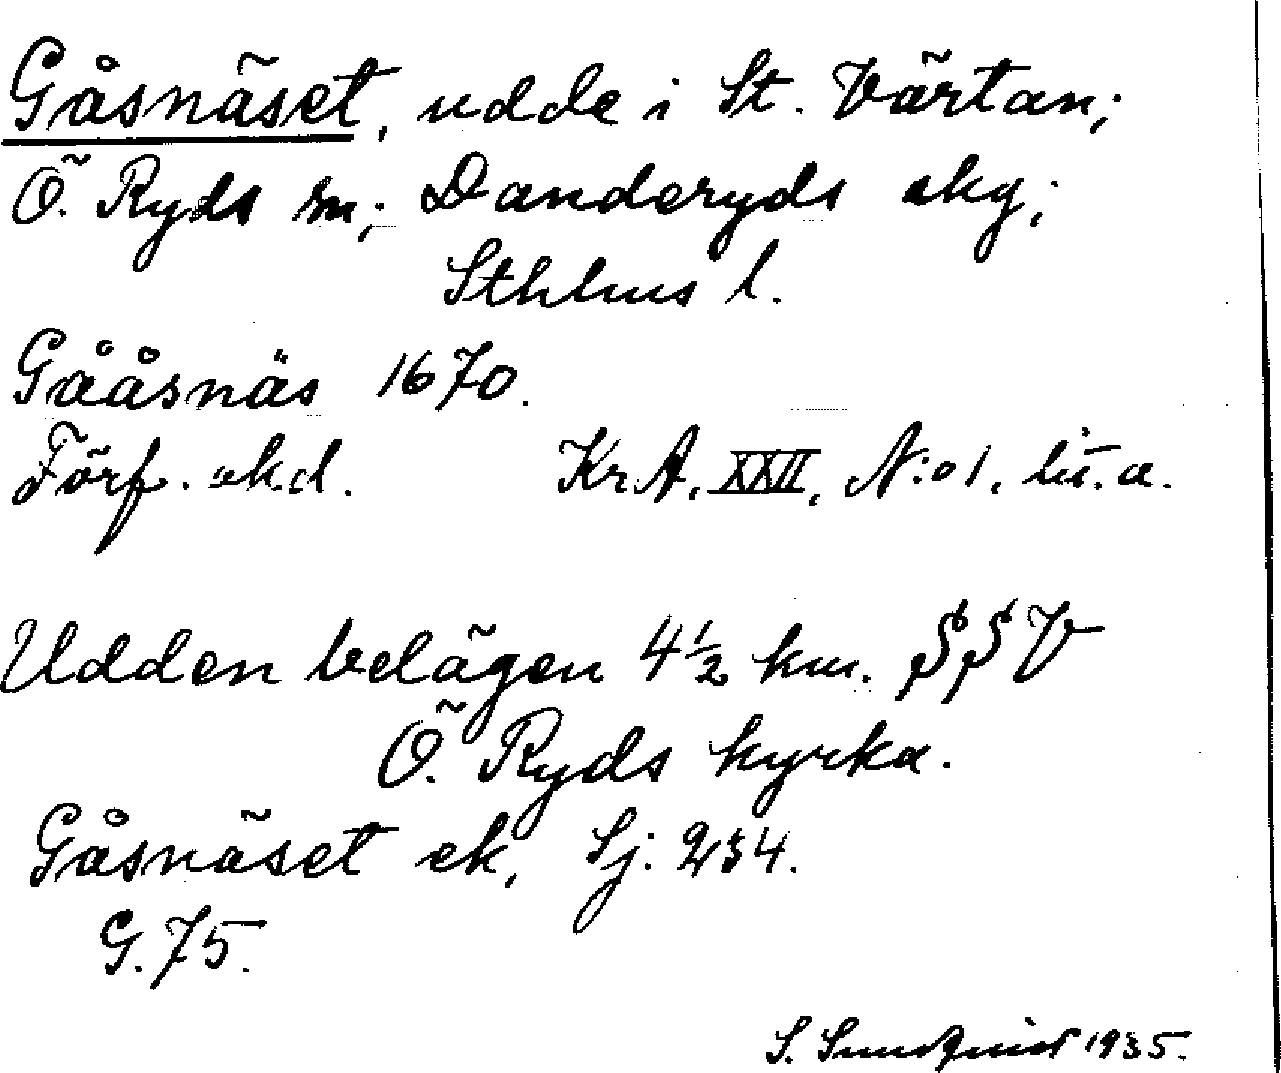 Gåsnäset, udde i St. Värtan;
Ö. Ryds sn; Danderyds skg;
Sthlms l.
Gååsnäs 1670.
Förf. okd. KrA, XXII, N:o 1, lit. a.
Udden belägen 4½ km. SSV
Ö. Ryds kyrka.
Gåsnäset ek, Sj: 234.
G. 75.
S. Sundquist 1935.